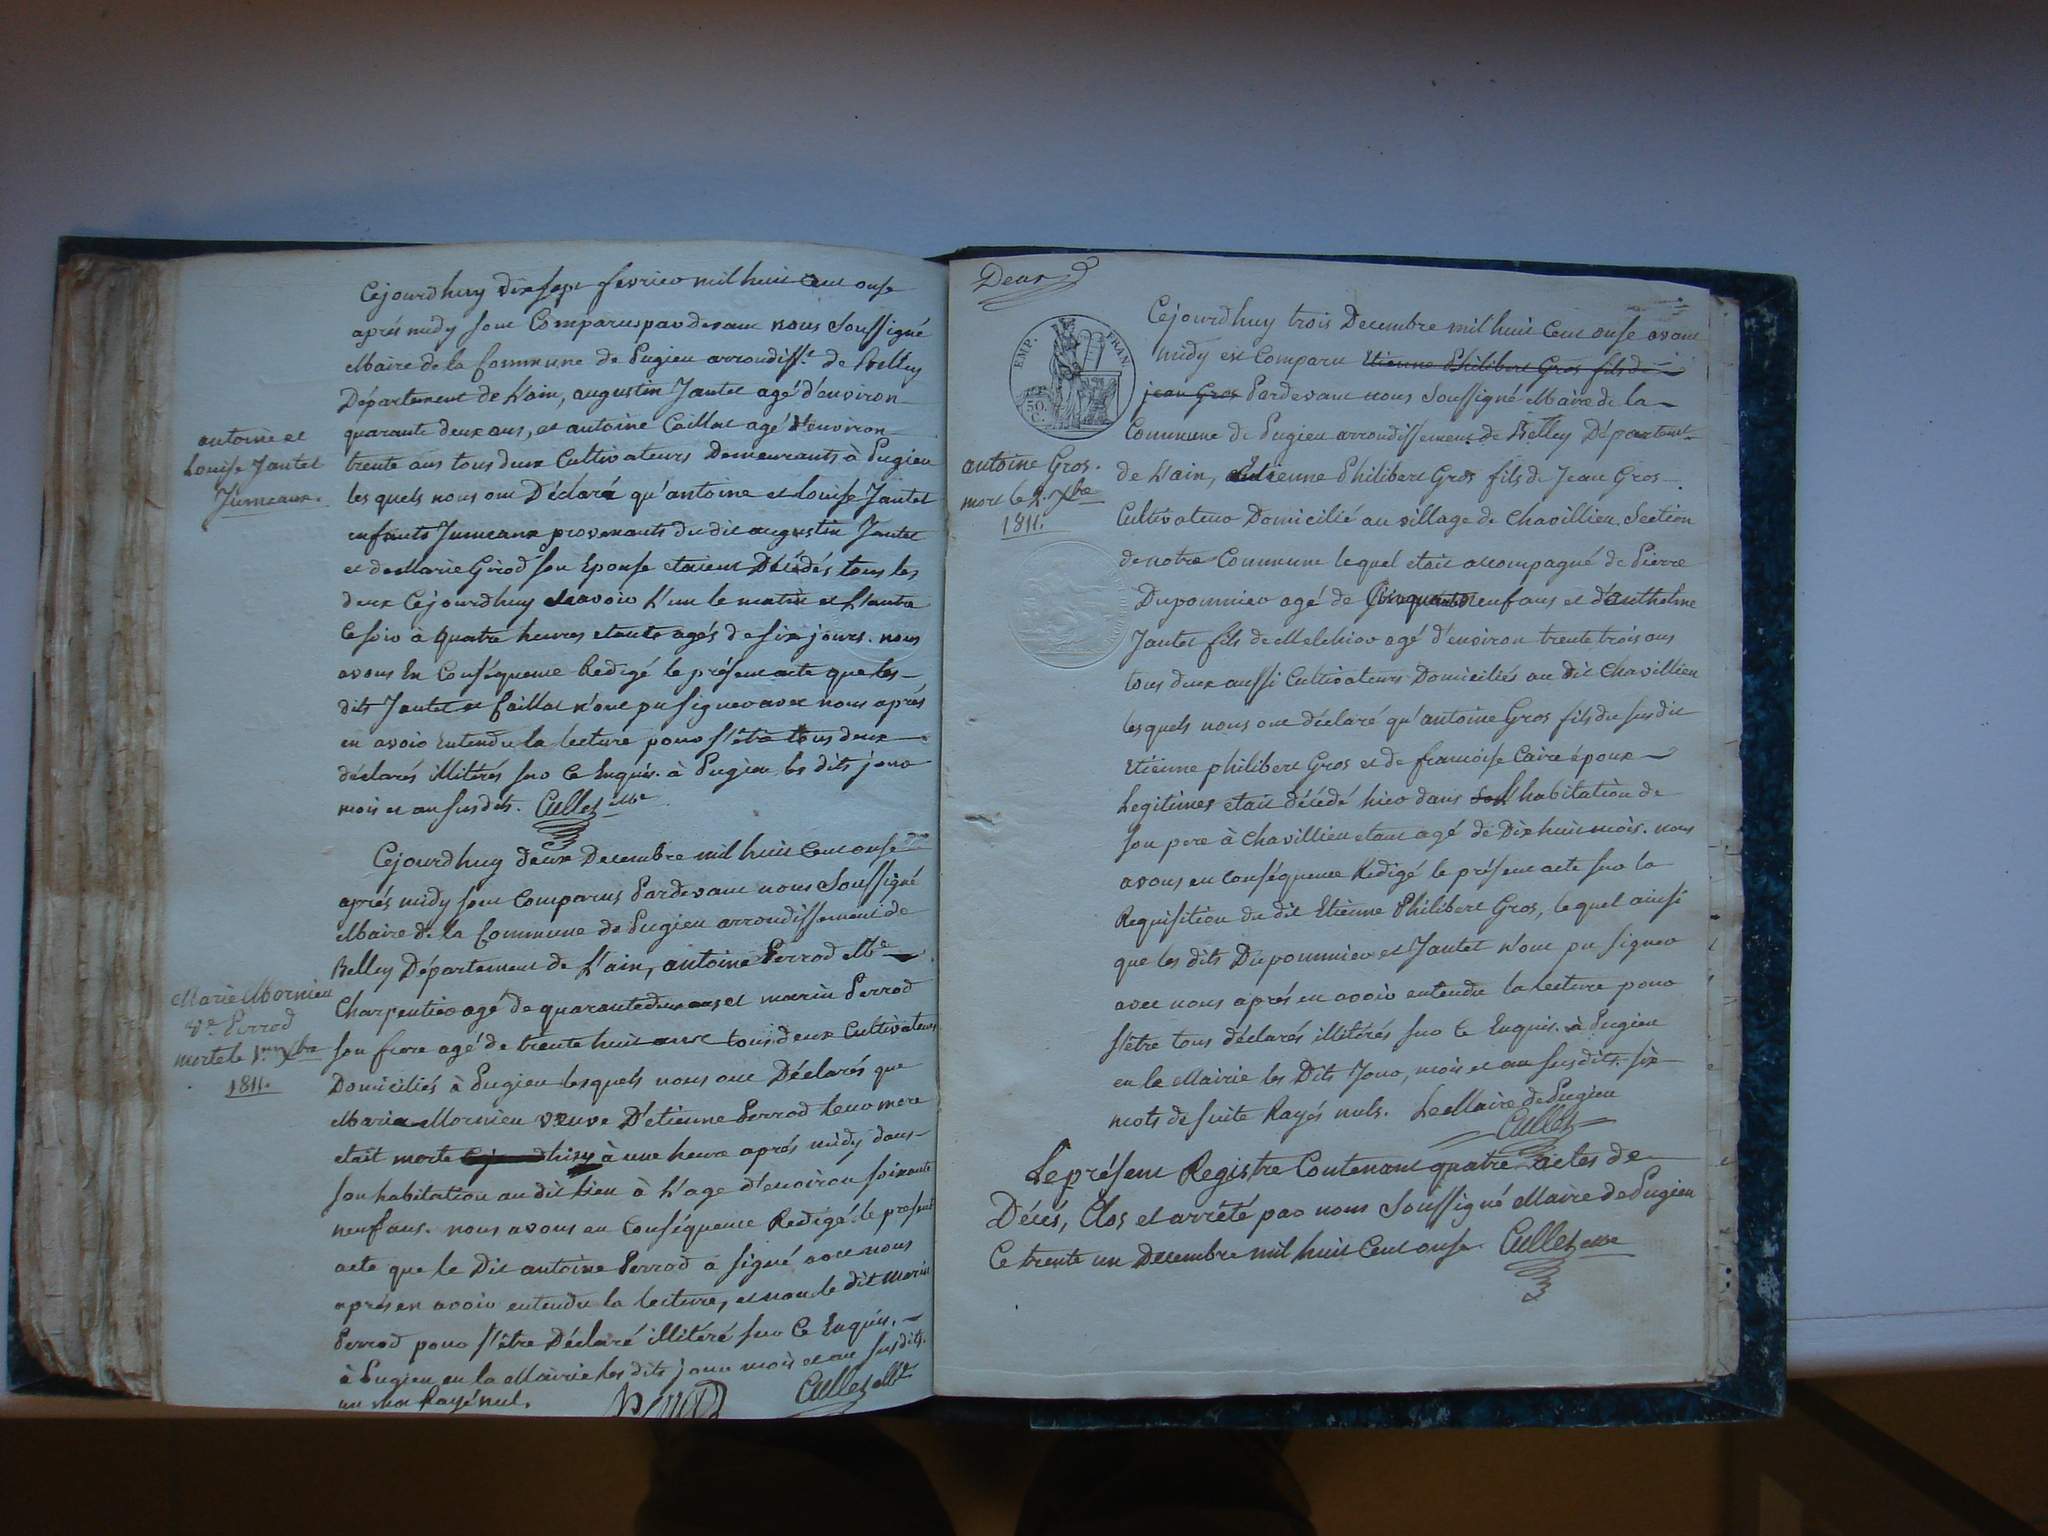 Cejourd'huy dix sept fevrier mil huit cent onse
après midy sont Comparus par devant nous Soussigné
Maire de la Commune de Pugieu arrondisst. de Belley
Département de L'ain, augustin Jantet agé d'environ
quarante deux ans, et antoine Caillat agé d'environ
antoine et
Louise Jantet
Jumeaux.
trente ans tous deux Cultivateurs Demeurants à Pugieu
les quels nous ont Déclaré qu'antoine et Louise Jantet
enfants Jumeaux provenants du dit augustin Jantet
et de Marie Girod son Epouse etaient Décédés tous les
deux Cejourd'huy scavoir L'un le matin et L'autre
le soir à quatre heures etants agés de six jours. nous
avons En Conséquence Redigé le présent acte que les
dits Jantet et Caillat n'ont pu signer avec nous après
en avoir Entendu la lecture pour s'être tous deux
déclarés illitérés sur ce Enquis. à Pugieu les dits jour
mois et an susdits. Cullet Me
Cejourd'huy deux Decembre mil huit Cent onse
après midy sont Comparus Pardevant nous Soussigné
Maire de la Commune de Pugieu arrondissement de
Belley Département de L'ain, antoine Perrod Me
Marie Mornieu
ve. Perrod
morte le 1er Xbre
1811.
Charpentier agé de quarante deux ans et marin Perrod
son frere agé de trente huit ans tous deux Cultivateurs
Domiciliés à Pugieu lesquels nous ont Déclarés que
Marie Mornieu veuve D'etienne Perrod leur mere
etait morte hier à une heure après midy dans
son habitation au dit Lieu à L'age d'environ soixante
neuf ans. nous avons en Conséquence Redigé le present
acte que le Dit antoine Perrod a signé avec nous
après en avoir entendu la lecture, et non le dit marin
Perrod pour s'être Déclaré illitéré sur Ce Enquis.
à Pugieu en la Mairie les dits jour mois et an susdits.
un mot Rayé nul. Cullet Me
Deux
EMP. FRAN.
50
C.
Cejourd'huy trois Decembre mil huit Cent onse avant
midy est Comparu Etienne Philibert Gros fils de
jean Gros Pardevant nous Soussigné Maire de la
Commune de Pugieu arrondissement de Belley Département
antoine Gros.
mort le 2. Xbre
1811.
de L'ain, Etienne Philibert Gros fils de Jean Gros
Cultivateur Domicilié au village de Chavillieu Section
de notre Commune lequel etait accompagné de Pierre
Dupommier agé de Cinquante neuf ans et d'anthelme
Jantet fils de Melchior agé d'environ trente trois ans
tous deux aussi Cultivateurs Domiciliés au Dit Chavillieu
lesquels nous ont déclaré qu'antoine Gros fils du susdit
Etienne philibert Gros et de francoise Caire époux
Legitimes etait décédé hier dans L'habitation de
son pere à Chavillieu etant agé de Dix huit mois. nous
avons en conséquence Redigé le présent acte sur la
Requisition du dit Etienne Philibert Gros, lequel ainsi
que les dits Dupommier et Jantet n'ont pu signer
avec nous après en avoir entendu la lecture pour
s'être tous déclarés illitérés sur ce Enquis. à Pugieu
en la Mairie les Dits Jour, mois et an susdits. six
mots de suite Rayés nuls. Le Maire de Pugieu
Cullet
Le présent Registre Contenant quatre actes de
Décés, Clos et arrêté par nous Soussigné Maire de Pugieu
Ce trente un Decembre mil huit Cent onse. Cullet Me